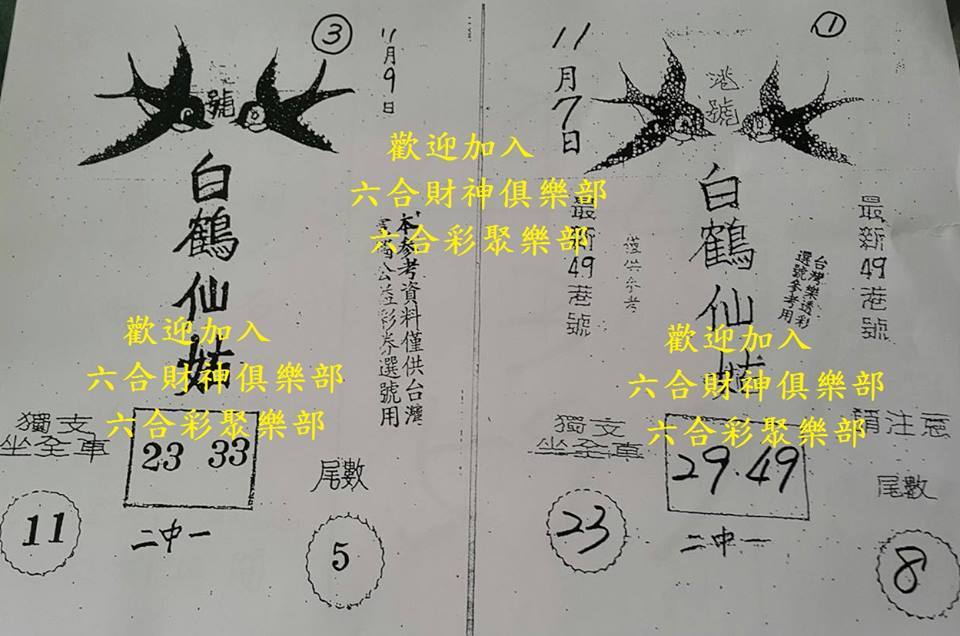 ③
11月9日
號
白鶴仙姑
本參考資料僅供台灣
公益彩券選號用
獨支
坐全車
11
23 33
二中一
尾數
5
①
11月7日
港號
白鶴仙姑
最新49港號
僅供參考
台灣樂透彩
選號參考用
最新49港號
請注意
獨支
坐全車
23
29.49
二中一
尾數
8
歡迎加入
六合財神俱樂部
六合彩聚樂部
歡迎加入
六合財神俱樂部
六合彩聚樂部
歡迎加入
六合財神俱樂部
六合彩聚樂部